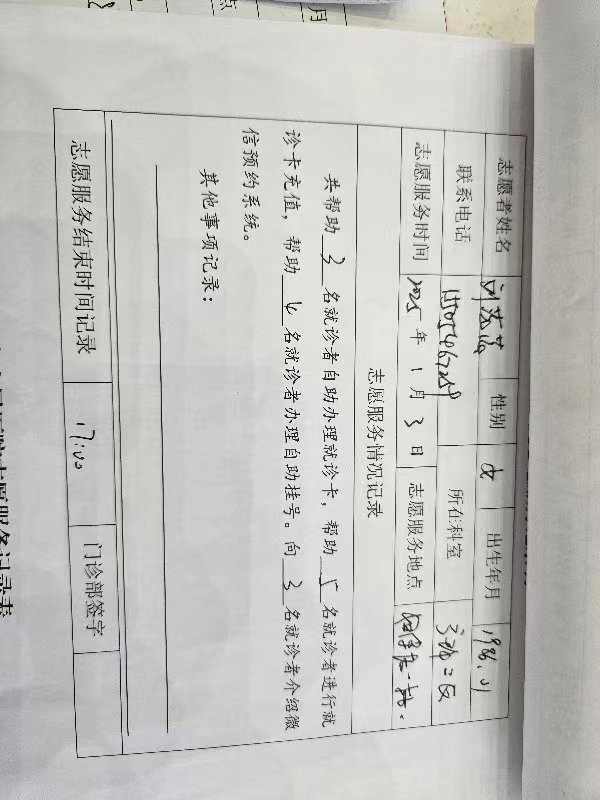 志愿者姓名 性别 女 出生年月 1986.01
联系电话 15054467259 所在科室
志愿服务时间 2025年1月3日 志愿服务地点
志愿服务情况记录
共帮助 3 名就诊者自助办理就诊卡，帮助 5 名就诊者进行就
诊卡充值，帮助 6 名就诊者办理自助挂号。向 3 名就诊者介绍微
信预约系统。
其他事项记录：
志愿服务结束时间记录 17:00 门诊部签字